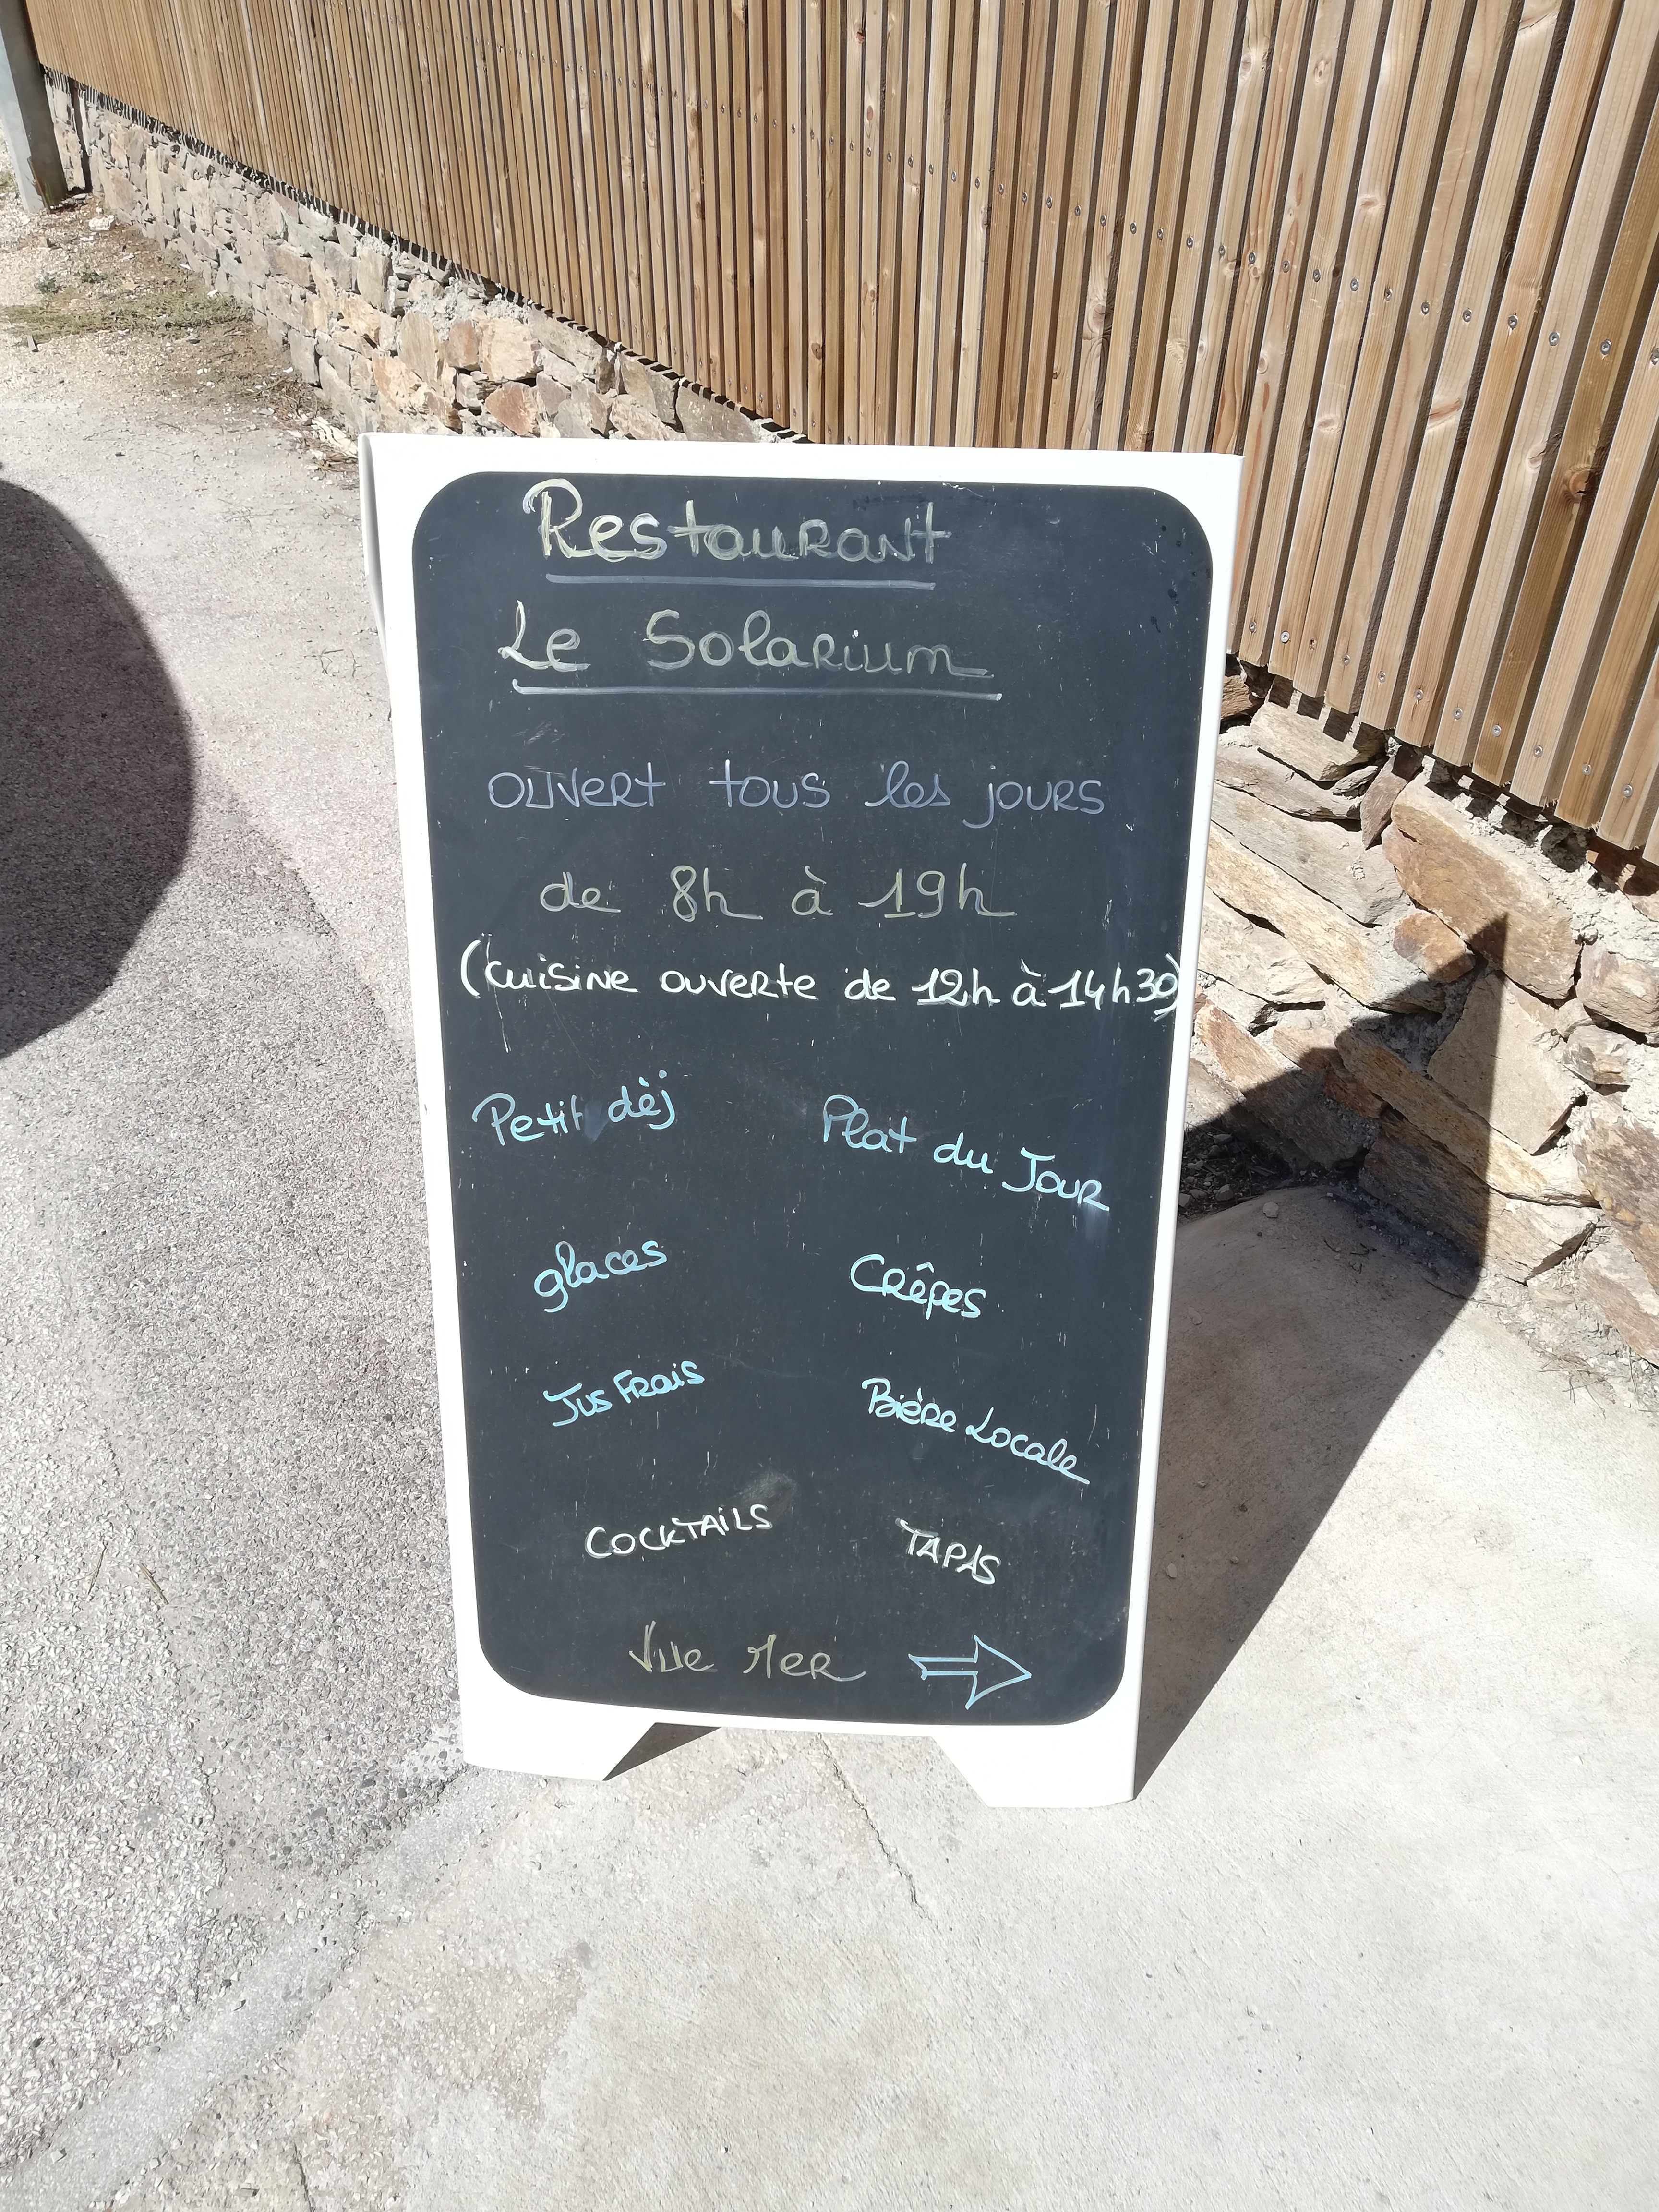 Restaurant
Le Solarium
ouvert tous les jours
de 8h à 19h
(cuisine ouverte de 12h à 14h30)
Petit dèj
Plat du Jour
glaces
Crêpes
Jus Frais
Bière Locale
COCKTAiLS
TAPAS
Vue Mer